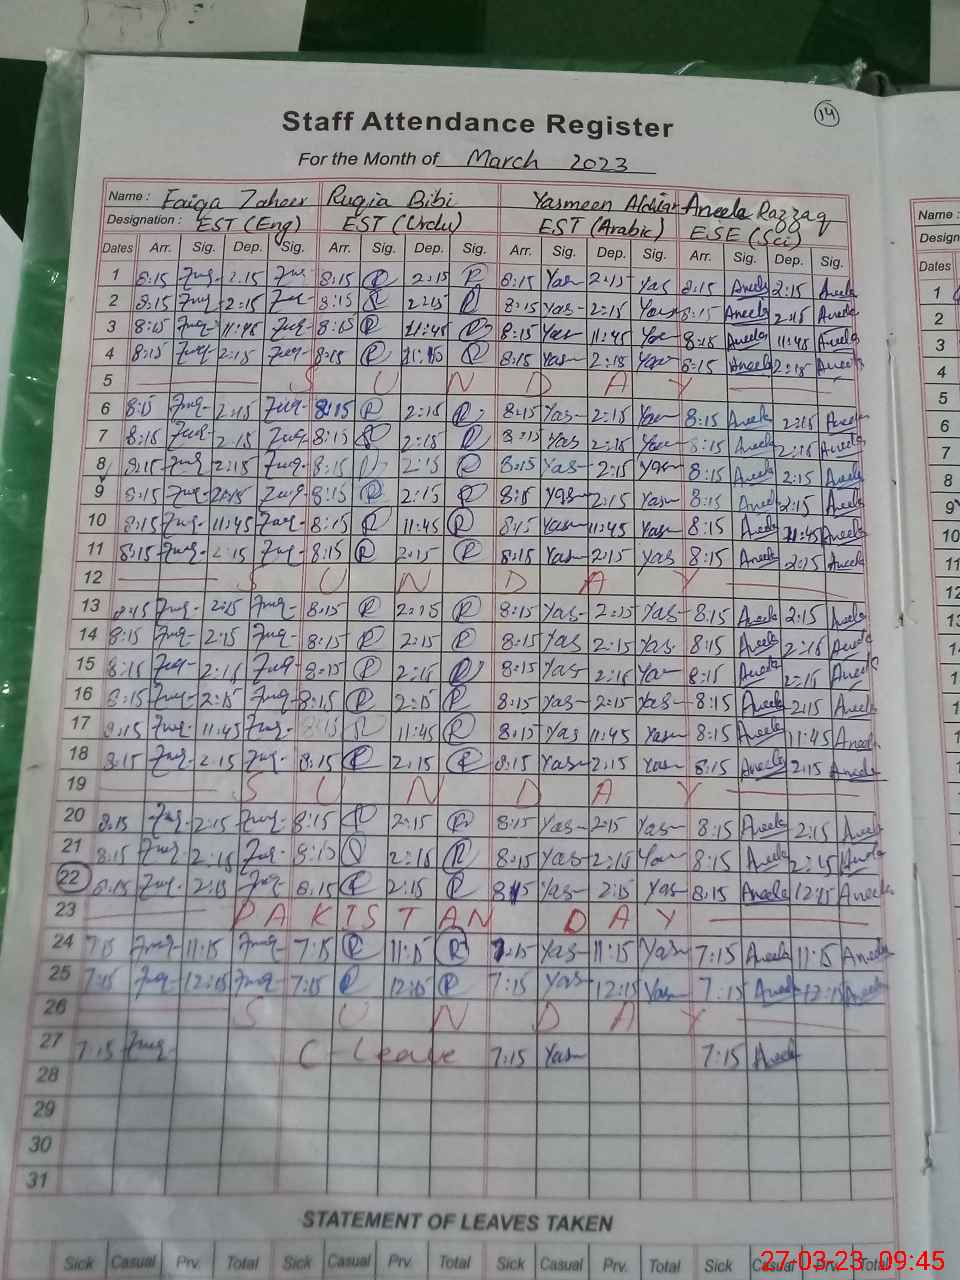 14
Staff Attendance Register
For the Month of March 2023
Name : Faiqa Zaheer Ruqia Bibi Yasmeen Aneela Razzaq
Designation : EST (Eng) EST (Urdu) EST (Arabic) ESE (Sci)
Dates Arr. Sig. Dep. Sig. Arr. Sig. Dep. Sig. Arr. Sig. Dep. Sig. Arr. Sig. Dep. Sig.
1 8:15 2:15 8:15 R 2:15 R 8:15 Yas 2:15 Yas 8:15 Aneela 2:15 Aneela
2 8:15 2:15 8:15 R 2:15 R 8:15 Yas 2:15 Yas 8:15 Aneela 2:15 Aneela
3 8:15 11:45 8:15 R 11:45 R 8:15 Yas 11:45 Yas 8:15 Aneela 11:45 Aneela
4 8:15 2:15 8:15 R R 8:15 Yas 2:15 Yas 8:15 Aneela 2:15 Aneela
5 S U N D A Y
6 8:15 2:15 8:15 R 2:15 R 8:15 Yas 2:15 Yas 8:15 Aneela 2:15 Aneela
7 8:15 2:15 8:15 R 2:15 R 8:15 Yas 2:15 Yas 8:15 Aneela 2:15 Aneela
8 8:15 2:15 8:15 R 2:15 R 8:15 Yas 2:15 Yas 8:15 Aneela 2:15 Aneela
9 8:15 2:15 8:15 R 2:15 R 8:15 Yas 2:15 Yas 8:15 Aneela 2:15 Aneela
10 8:15 11:45 8:15 R 11:45 R 8:15 Yas 11:45 Yas 8:15 Aneela 11:45 Aneela
11 8:15 2:15 8:15 R 2:15 R 8:15 Yas 2:15 Yas 8:15 Aneela 2:15 Aneela
12 S U N D A Y
13 8:15 2:15 8:15 R 2:15 R 8:15 Yas 2:15 Yas 8:15 Aneela 2:15 Aneela
14 8:15 2:15 8:15 R 2:15 R 8:15 Yas 2:15 Yas 8:15 Aneela 2:15 Aneela
15 8:15 2:15 8:15 R 2:15 R 8:15 Yas 2:15 Yas 8:15 Aneela 2:15 Aneela
16 8:15 2:15 8:15 R 2:15 R 8:15 Yas 2:15 Yas 8:15 Aneela 2:15 Aneela
17 8:15 11:45 8:15 R 11:45 R 8:15 Yas 11:45 Yas 8:15 Aneela 11:45 Aneela
18 8:15 2:15 8:15 R 2:15 R 8:15 Yas 2:15 Yas 8:15 Aneela 2:15 Aneela
19 S U N D A Y
20 8:15 2:15 8:15 R 2:15 R 8:15 Yas 2:15 Yas 8:15 Aneela 2:15 Aneela
21 8:15 2:15 8:15 R 2:15 R 8:15 Yas 2:15 Yas 8:15 Aneela 2:15 Aneela
22 8:15 2:15 8:15 R 2:15 R 8:15 Yas 2:15 Yas 8:15 Aneela 12:15 Aneela
23 PAKISTAN DAY
24 7:15 11:15 7:15 R 11:15 R 7:15 Yas 11:15 Yas 7:15 Aneela 11:15 Aneela
25 7:15 12:15 7:15 R 12:15 R 7:15 Yas 12:15 Yas 7:15 Aneela 12:15 Aneela
26 S U N D A Y
27 7:15 C-Leave 7:15 Yas 7:15 Aneela
28
29
30
31
STATEMENT OF LEAVES TAKEN
Sick Casual Prv. Total Sick Casual Prv. Total Sick Casual Prv. Total Sick Casual Prv. Total
27-03-23 09:45
Name :
Dates
1
2
3
4
5
6
7
8
9
10
11
12